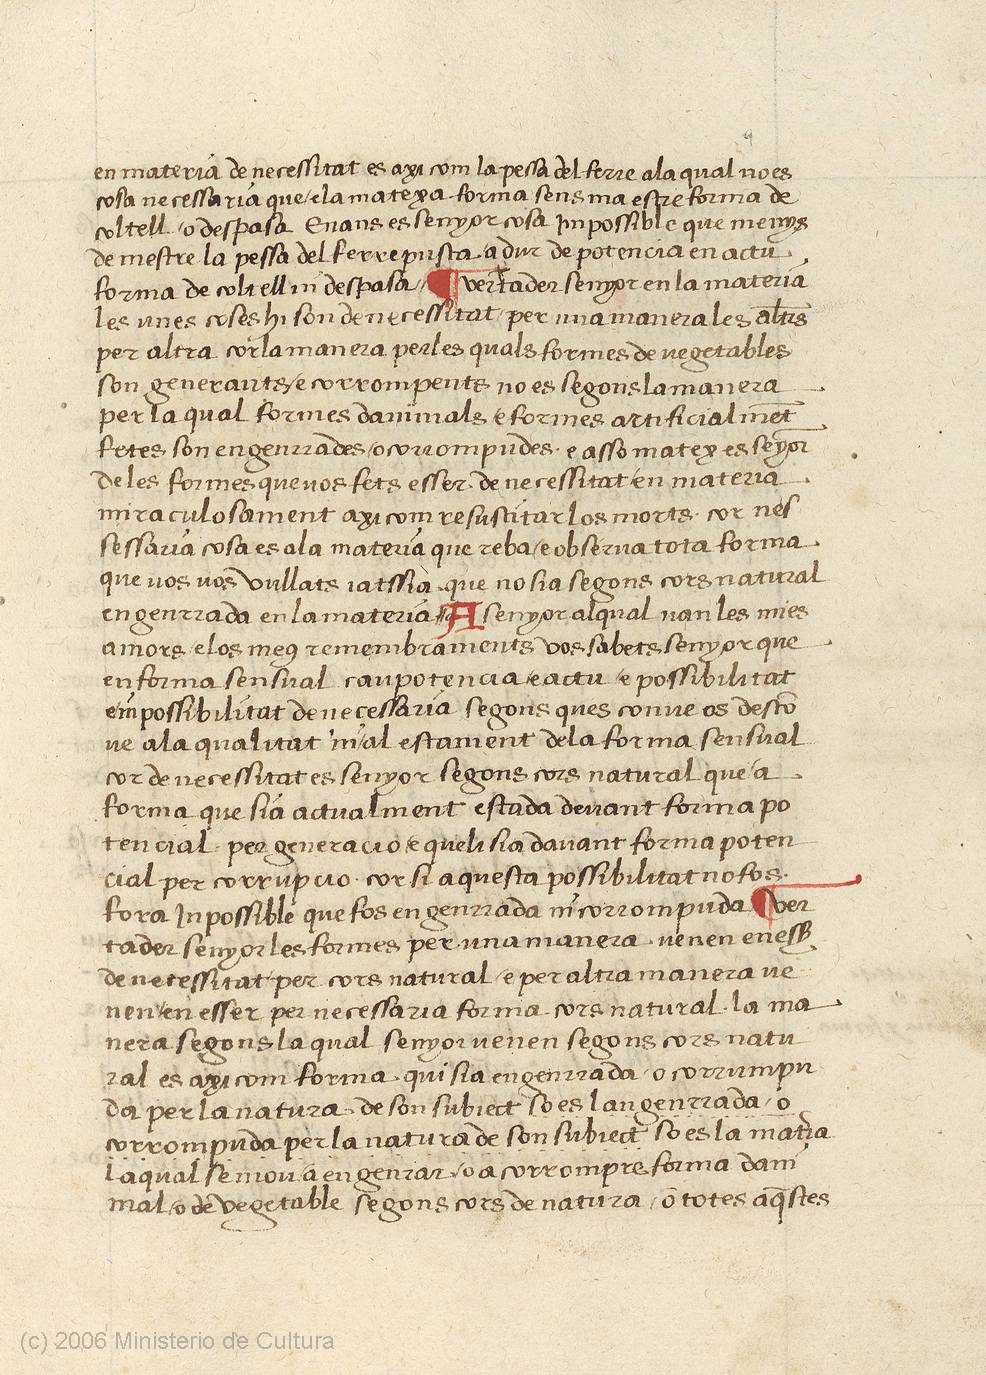 en materia de necessitat es axi com la pessa del ferre ala qual no es
cosa necessaria que ela matexa forma sens maestre forma de
coltell o despasa Enans es senyor cosa Inpossible que menys
de mestre la pessa del ferre pusta adur de potencia en actu
forma de coltell ni despasa ¶ vertader senyor en la materia
les unes coses hi son de necessitat per una manera les altrs
per altra cor la manera per les quals formes de vegetables
son generants e corrompents no es segons la manera
per la qual formes danimals e formes artificialmēt
fetes son engenrrades o corrompudes e asso matex es seyor
de les formes que vos fets esser de necessitat en materia
miraculosament axi com resuscitar los morts cor nes
sessaria cosa es ala materia que reba e observa tota forma
que vos vos vullats iatssia que no sia segons cors natural
engenrrada en la materia A senyor al qual van les mies
amors e los meus remembraments vos sabets senyor que
en forma sensual cau potencia e actu e possibilitat
e inpossibilitat de necessaria segons ques conve os descō
ve ala qualitat ni al estament dela forma sensual
cor de necessitat es senyor segons cors natural que a
forma que sia actualment estada devant forma po
tencial per generacio e que li sia davant forma poten
cial per corrupcio cor si aquesta possibilitat no fos
fora Inpossible que fos engenrrada ni corrompuda ¶ ver
tader senyor les formes per una manera venen en ess
de necessitat per cors natural e per altra manera ve
nen en esser per necessaria forma cors natural la ma
nera segons la qual senyor venen segons cors natu
ral es axi com forma qui sia engenrrada o corrumpu
da per la natura de son subiect so es la ngenrrada o
corrompuda per la natura de son subiect so es la matia
la qual se mou a engenrar o a corrompre forma dani
mal o de vegetable segons cors de natura o totes aq̄stes
(c) 2006 Ministerio de Cultura